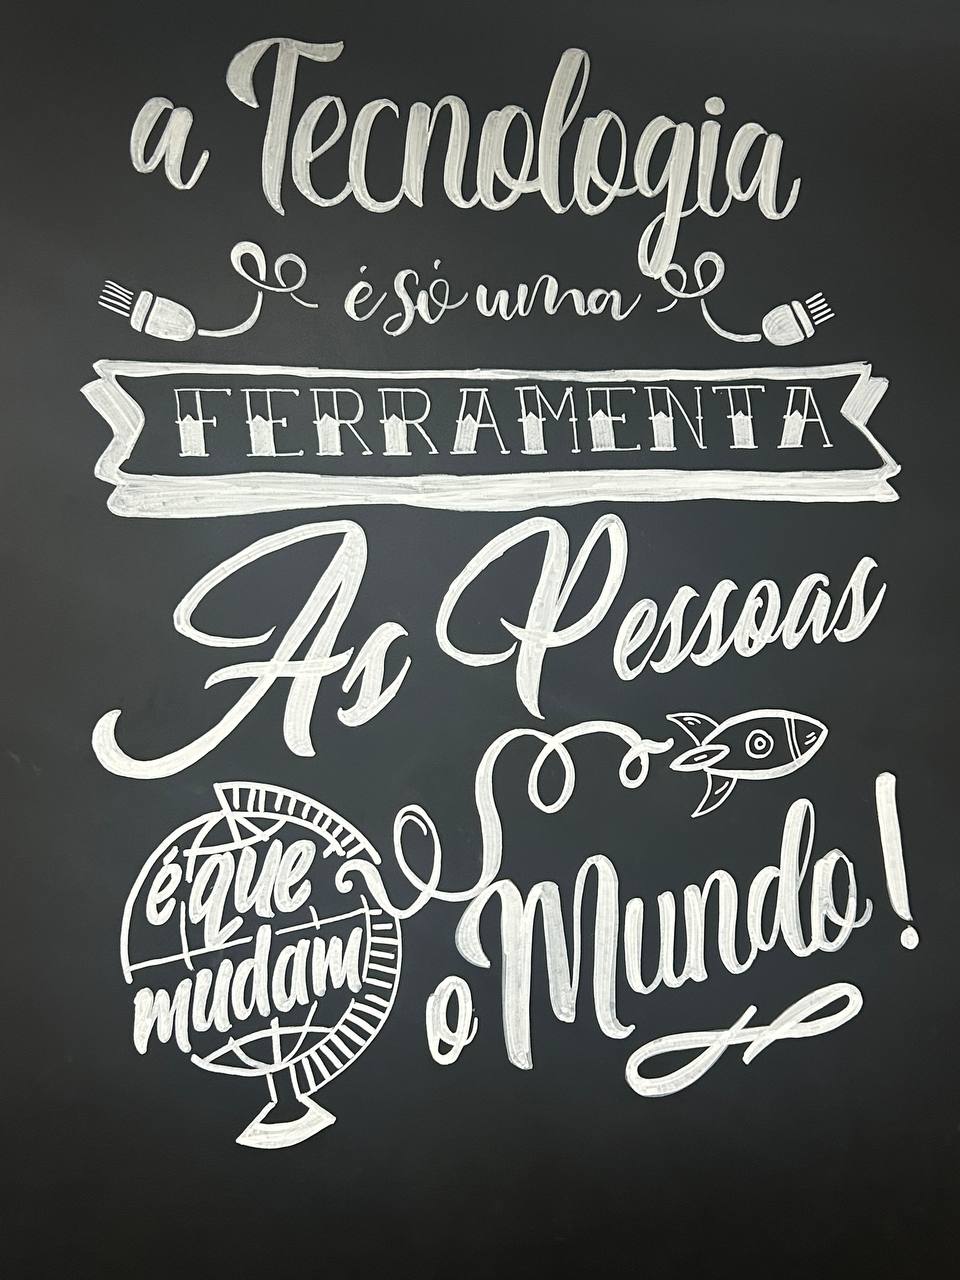 a Tecnologia
é só uma
FERRAMENTA
As Pessoas
é que
mudam
o Mundo!